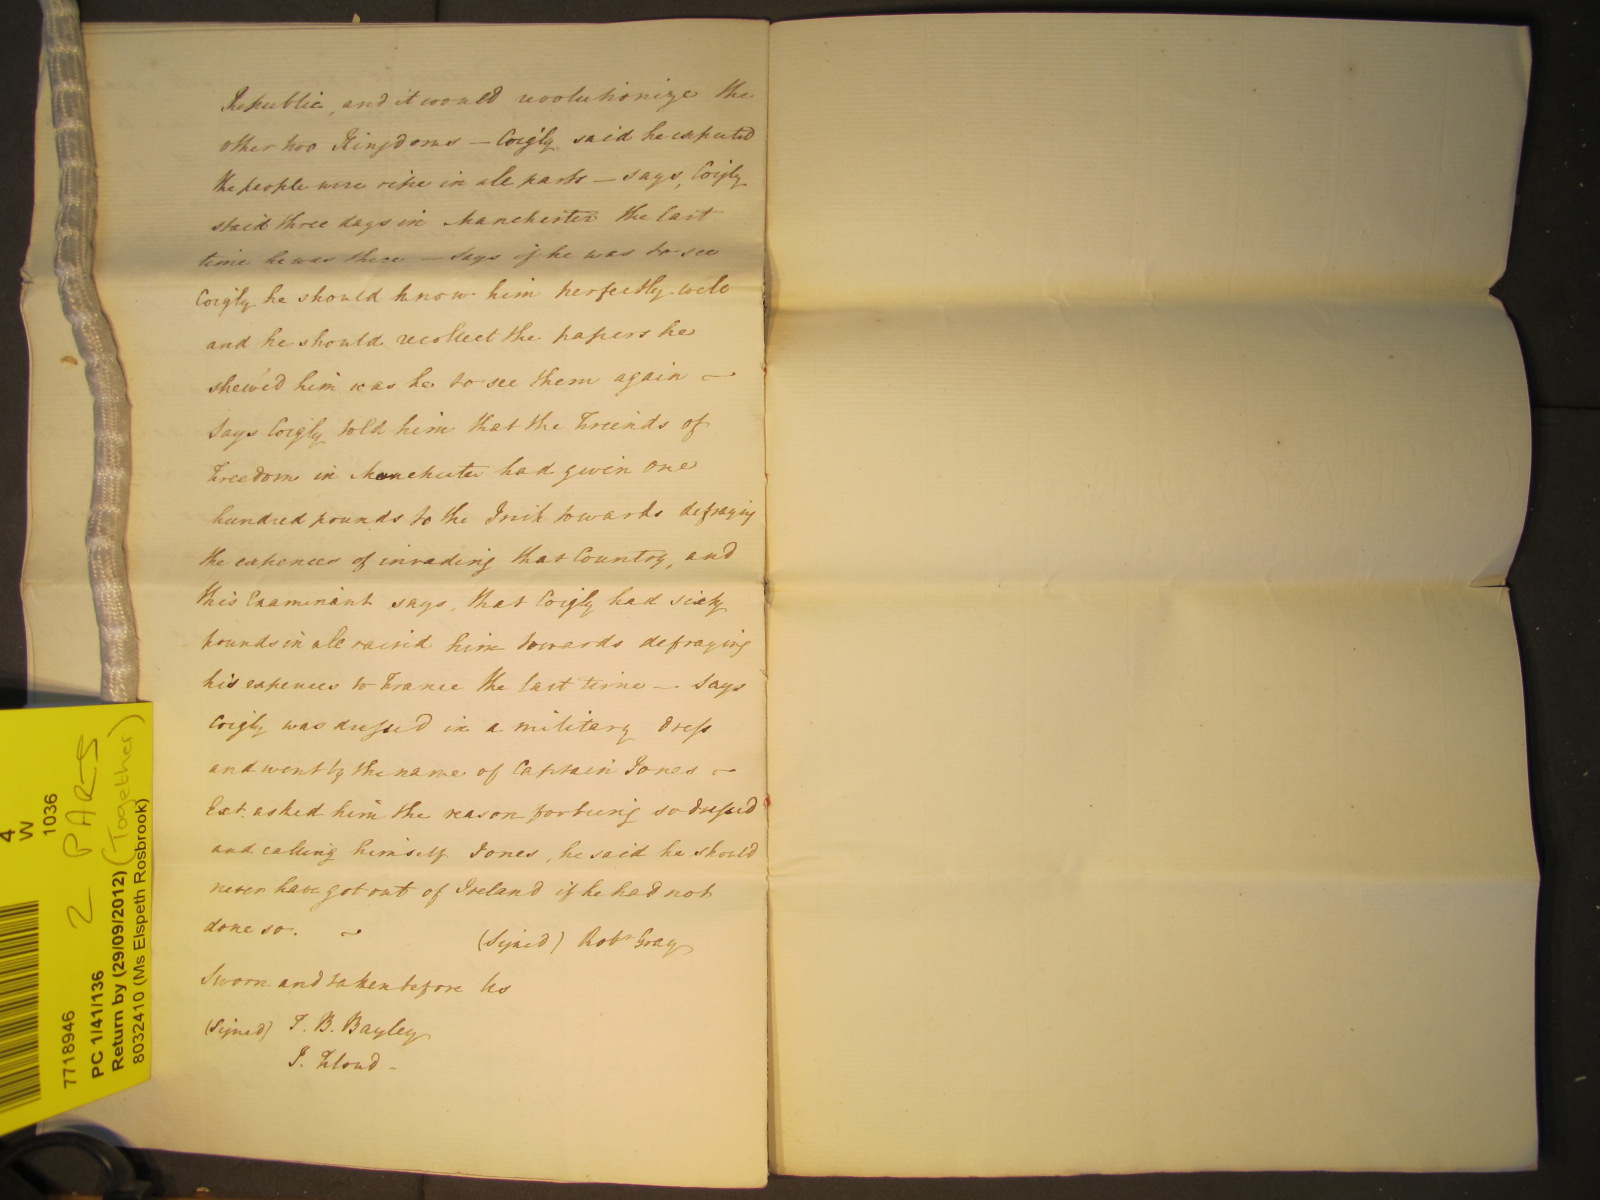 Republic, and it would revolutionize the
other two Kingdoms — Coigly said he expected
the people were ripe in all parts — says, Coigly
staid three days in Manchester the last
time he was there — says if he was to see
Coigly he should know him perfectly well
and he should recollect the papers he
shew'd him was he to see them again —
Says Coigly told him that the Friends of
Freedom in Manchester had given one
hundred pounds to the Irish towards defraying
the expences of invading that Country, and
this Examinant says, that Coigly had sixty
pounds in all raised him towards defraying
his expences to France the last time — Says
Coigly was dressed in a military dress
and went by the name of Captain Jones —
Ext. asked him the reason for being so dressed
and calling himself Jones, he said he should
never have got out of Ireland if he had not
done so. —
(Signed) Robt Gray
Sworn and taken before Us
(Signed) T. B. Bayley
J. Floud -
4
W
1036
2 PARTS
(Together)
7718946
PC 1/41/136
Return by (29/09/2012)
8032410 (Ms Elspeth Rosbrook)